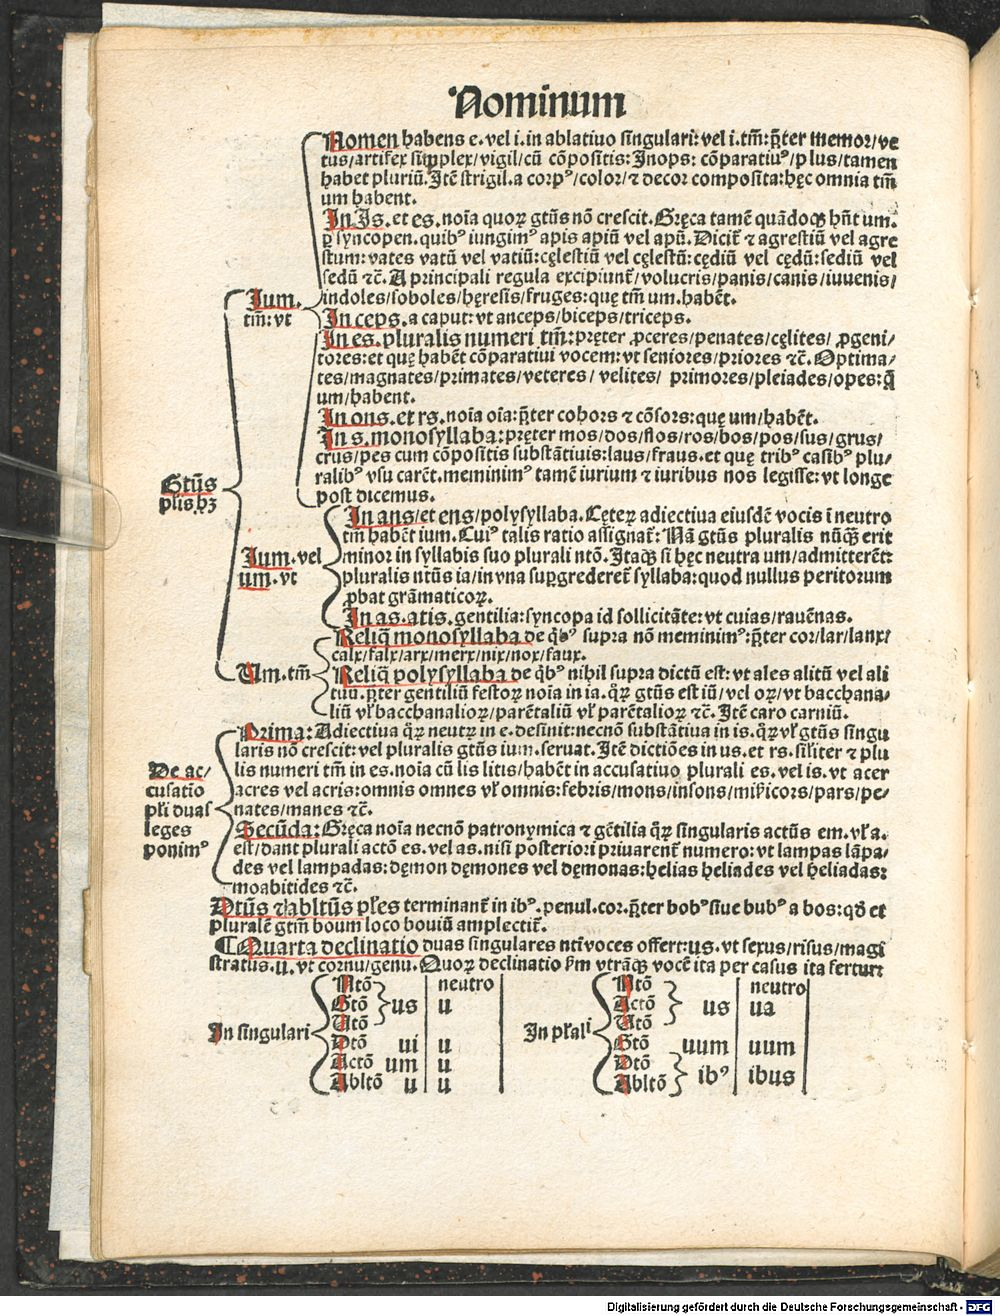 Nominum
Nomen habens e. vel i. in ablatiuo singulari: vel i. tm̄: p̄ter memor/ve
tus/artifex simplex/vigil/cū cōpositis: Inops: cōparatiuꝰ/plus/tamen
habet pluriū. Itē strigil. a corpꝰ/color/ ⁊ decor composita: hęc omnia tm̄
um habent.
In Is. et es. noīa quoꝝ gtūs nō crescit. Gręca tamē quādoqꝫ hn̄t um.
ꝑ syncopen. quibꝰ iungimꝰ apis apiū vel apū. Dicit̄ ⁊ agrestiū vel agre
stum: vates vatū vel vatiū: cęlestiū vel cęlestū: cędiū vel cędū: sediū vel
sedū ⁊c̄. A principali regula excipiunt̄/volucris/panis/canis/iuuenis/
Ium.
tm̄: vt
indoles/soboles/hęresis/fruges: quę tm̄ um. habēt.
In ceps. a caput: vt anceps/biceps/triceps.
In es. pluralis numeri tm̄: pręter ꝓceres/penates/cęlites/ ꝓgeni
tores: et quę habēt cōparatiui vocem: vt seniores/priores ⁊c̄. Optima/
tes/magnates/primates/veteres/ velites/ primores/pleiades/opes: q̄
um/habent.
In ons. et rs. noīa oīa: p̄ter cohors ⁊ cōsors: quę um/habēt.
In s. monosyllaba: pręter mos/dos/flos/ros/bos/pos/sus/grus/
crus/pes cum cōpositis substātiuis: laus/fraus. et quę tribꝰ casibꝰ plu/
ralibꝰ vsu carēt. meminimꝰ tamē iurium ⁊ iuribus nos legisse: vt longe
post dicemus.
Gtūs
plis hꝫ
In ans/et ens/polysyllaba. Cęteꝝ adiectiua eiusdē vocis ī neutro
tm̄ habēt ium. Cuiꝰ talis ratio assignat̄: Nā gtūs pluralis nūqꝫ erit
Ium. vel
um. vt
minor in syllabis suo plurali ntō. Itaqꝫ si hęc neutra um/admitterēt:
pluralis ntūs ia/in vna suꝑgrederet̄ syllaba: quod nullus peritorum
ꝓbat grāmaticoꝝ.
In as. atis. gentilia: syncopa id sollicitāte: vt cuias/rauēnas.
Um. tm̄
Reliq̄ monosyllaba de qͥbꝰ supra nō meminimꝰ: p̄ter cor/lar/lanx/
calx/falx/arx/merx/nix/nox/faux.
Reliq̄ polysyllaba de qͥbꝰ nihil supra dictū est: vt ales alitū vel ali
tuū. p̄ter gentiliū festoꝝ noīa in ia. q̄ꝝ gtūs est iū/vel oꝝ/vt bacchana/
liū vl̄ bacchanalioꝝ/parētaliū vl̄ parētalioꝝ ⁊c̄. Itē caro carniū.
De ac/
cusatīo
pl̄i duas
leges
ponimꝰ
Prima: Adiectiua q̄ꝝ neutꝝ in e. desinit: necnō substātiua in is. q̄ꝝ vl̄ gtūs singu
laris nō crescit: vel pluralis gtūs ium. seruat. Itē dictiōes in us. et rs. sil̄iter ⁊ plu
lis numeri tm̄ in es. noīa cū lis litis/habēt in accusatiuo plurali es. vel is. vt acer
acres vel acris: omnis omnes vl̄ omnis: febris/mons/insons/mīsericors/pars/pe/
nates/manes ⁊c̄.
Secūda: Gręca noīa necnō patronymica ⁊ gētilia q̄ꝝ singularis actūs em. vl̄ a.
est/dant plurali actō es. vel as. nisi posteriori priuarent̄ numero: vt lampas lāpa/
des vel lampadas: dęmon dęmones vel dęmonas: helias heliades vel heliadas:
moabitides ⁊c̄.
Dtūs ⁊ abltūs pl̄es terminant̄ in ibꝰ. penul. cor. p̄ter bobꝰ siue bubꝰ a bos: qd̄ et
pluralē gtm̄ boum loco bouiū amplectit̄.
¶ Quarta declinatio duas singulares nti voces offert: us. vt sexus/risus/magi
stratus. u. vt cornu/genu. Quoꝝ declinatio ẜm vtrāqꝫ vocē ita per casus ita fertur:
In singulari
neutro
Ntō
Gtō us u
Utō
Dtō ui u
Actō um u
Abltō u u
In pl̄ali
neutro
Ntō
Actō us ua
Utō
Gtō uum uum
Dtō
Abltō ibꝰ ibus
Digitalisierung gefördert durch die Deutsche Forschungsgemeinschaft - DFG